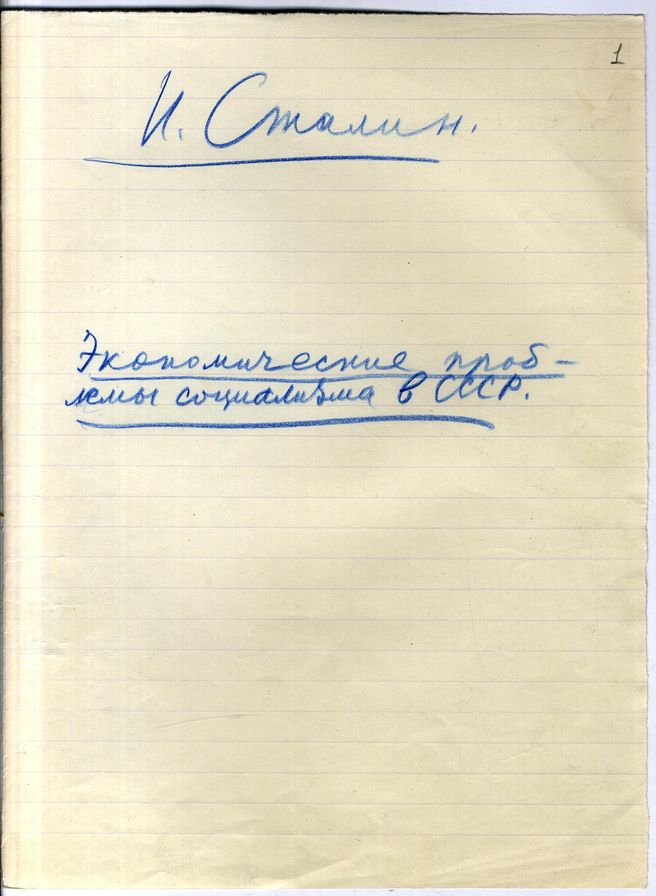 1
И. Сталин.
Экономические проб-
лемы социализма в СССР.